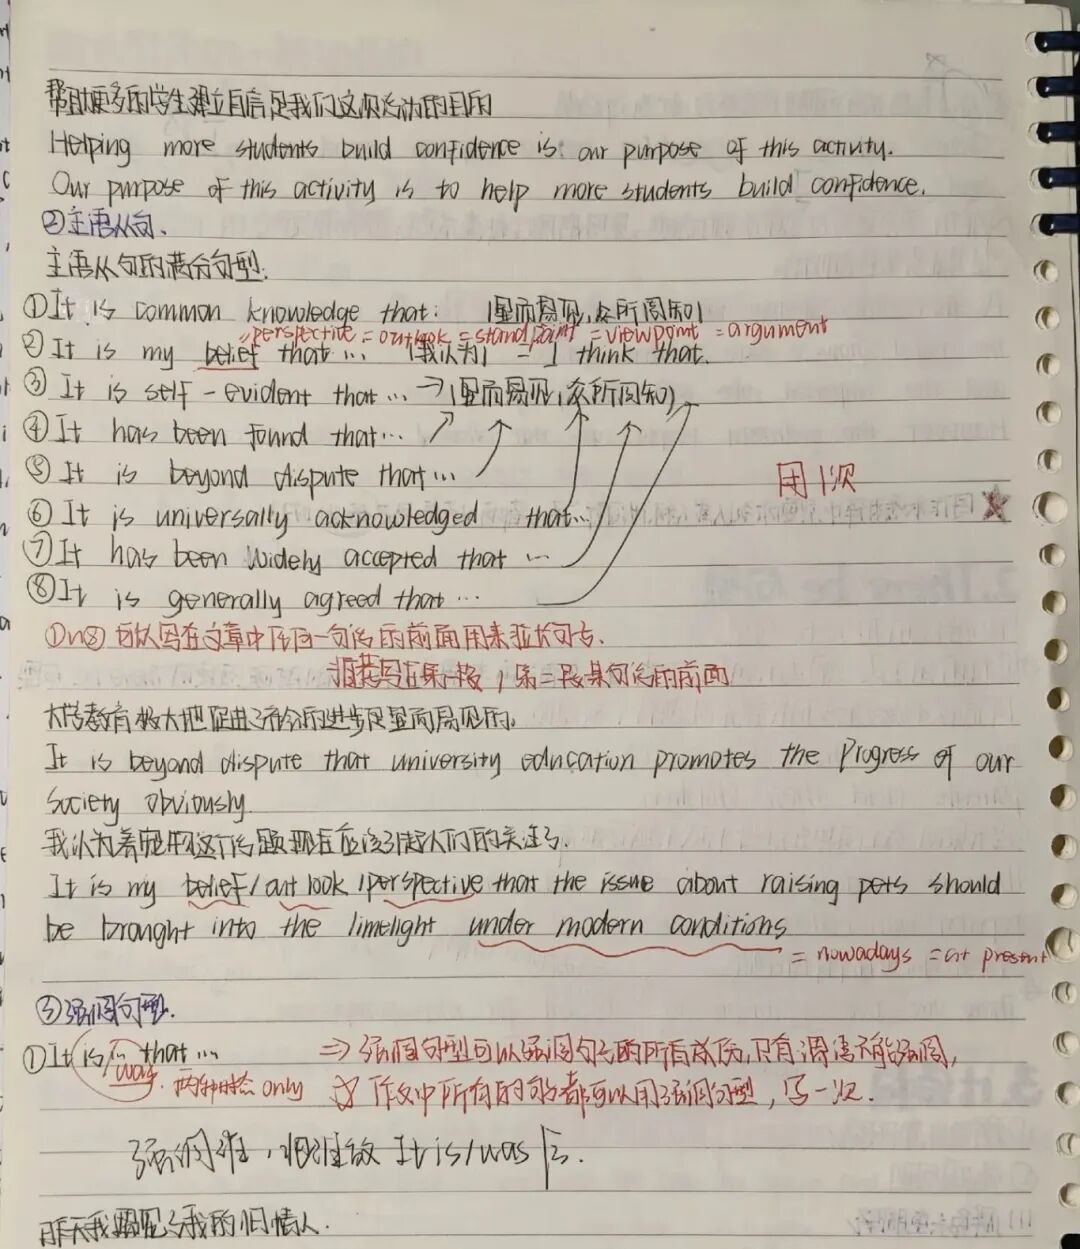 帮助更多的学生建立自信是我们这次活动的目的
Helping more students build confidence is our purpose of this activity.
Our purpose of this activity is to help more students build confidence.
②主语从句.
主语从句的满分句型:
①It is common knowledge that: (显而易见,众所周知)
perspective = outlook = standpoint = viewpoint = argument
②It is my belief that... (我认为) = I think that.
③It is self-evident that... →(显而易见,众所周知)
④It has been found that...
⑤It is beyond dispute that...
用1次
⑥It is universally acknowledged that...
⑦It has been widely accepted that ...
⑧It is generally agreed that ...
①~⑧可以写在文章中任何一句话的前面用来拉长句子.
推荐写在第一段,第三段某句话的前面
大学教育极大地促进社会的进步是显而易见的.
It is beyond dispute that university education promotes the Progress of our
Society obviously.
我认为养宠物这个话题现在应该引起人们的关注了.
It is my belief/out look/perspective that the issue about raising pets should
be brought into the limelight under modern conditions
= nowadays = at present
③强调句型.
①It is/was that... ⇒ 强调句型可以强调句子的所有成份,只有谓语不能强调,
两种时态 only 作文中所有的句子都可以用强调句型,写一次.
强调谁,把谁放It is/was 后.
昨天我遇见了我的旧情人.